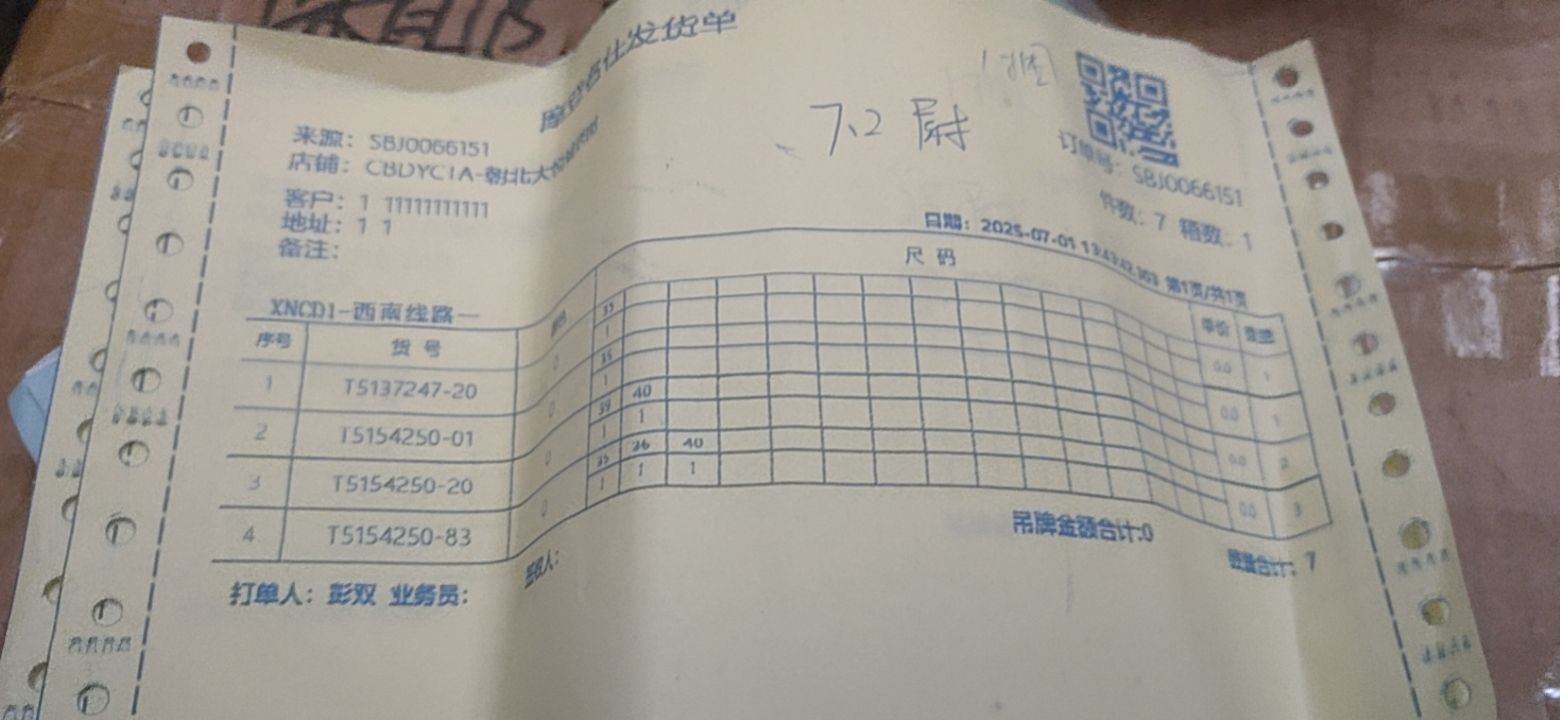 发货单
7.2
来源: SBJ0066151
店铺: CBDYC1A-朝北大
订单号: SBJ0066151
客户: 1 11111111111
件数: 7 箱数: 1
地址: 1 1
备注:
日期: 2025-07-01 13:43:42 第1页/共1页
XNCD1-西南线路一
序号 货号 尺码 单价 数量
1 T5137247-20 0 35 0.0 1
1
2 T5154250-01 0 35 0.0 1
1
3 T5154250-20 0 39 40 0.0 2
1 1
4 T5154250-83 0 35 36 40 0.0 3
1 1 1
吊牌金额合计:0 数量合计: 7
打单人: 彭双 业务员: 签收人: